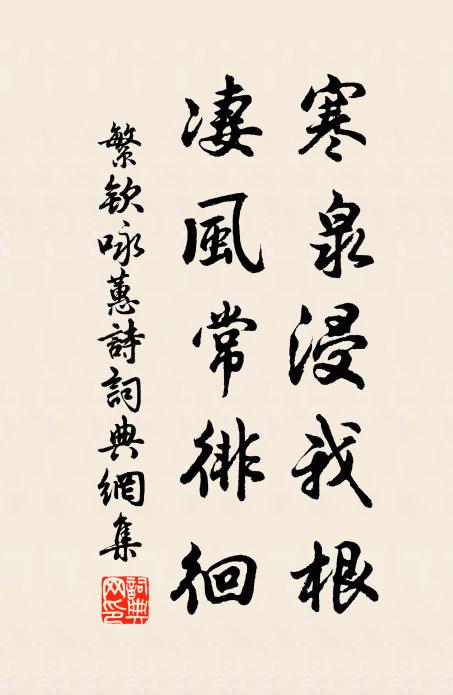 寒泉浸我根
凄風常徘徊
繁欽咏蕙詩詞典網集
詞典网印